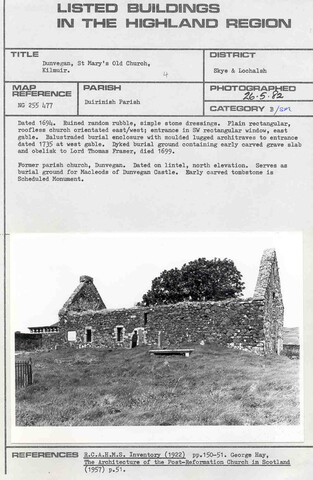 LISTED BUILDINGS
IN THE HIGHLAND REGION
TITLE
Dunvegan, St Mary's Old Church,
Kilmuir.
4
DISTRICT
Skye & Lochalsh
MAP
REFERENCE
NG 255 477
PARISH
Duirinish Parish
PHOTOGRAPHED
26.5.82
CATEGORY B/SM
Dated 1694. Ruined random rubble, simple stone dressings. Plain rectangular,
roofless church orientated east/west; entrance in SW rectangular window, east
gable. Balustraded burial enclosure with moulded lugged architraves to entrance
dated 1735 at west gable. Dyked burial ground containing early carved grave slab
and obelisk to Lord Thomas Fraser, died 1699.
Former parish church, Dunvegan. Dated on lintel, north elevation. Serves as
burial ground for Macleods of Dunvegan Castle. Early carved tombstone is
Scheduled Monument.
REFERENCES R.C.A.H.M.S. Inventory (1922) pp.150-51. George Hay,
The Architecture of the Post-Reformation Church in Scotland
(1957) p.51.